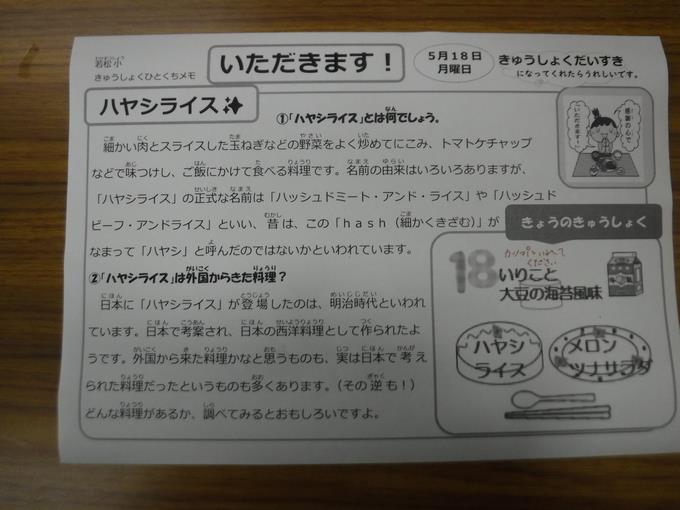 若松小
きゅうしょくひとくちメモ
いただきます！
5月18日
月曜日
きゅうしょくだいすき
になってくれたらうれしいです。
ハヤシライス
①「ハヤシライス」とは何でしょう。
細かい肉とスライスした玉ねぎなどの野菜をよく炒めてにこみ、トマトケチャップ
などで味つけし、ご飯にかけて食べる料理です。名前の由来はいろいろありますが、
「ハヤシライス」の正式な名前は「ハッシュドミート・アンド・ライス」や「ハッシュド
ビーフ・アンドライス」といい、昔は、この「hash（細かくきざむ）」が
なまって「ハヤシ」と呼んだのではないかといわれています。
②「ハヤシライス」は外国からきた料理？
日本に「ハヤシライス」が登場したのは、明治時代といわれ
ています。日本で考案され、日本の西洋料理として作られたよ
うです。外国から来た料理かなと思うものも、実は日本で考え
られた料理だったというものも多くあります。（その逆も！）
どんな料理があるか、調べてみるとおもしろいですよ。
感謝の心で
いただきます！
きょうのきゅうしょく
18
ください
いりこと
大豆の海苔風味
ハヤシ
ライス
メロン
ツナサラダ